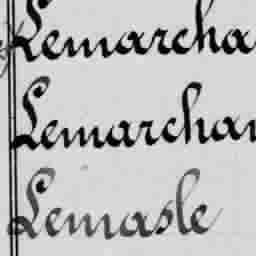 Lemarcha
Lemarchan
Lemasle